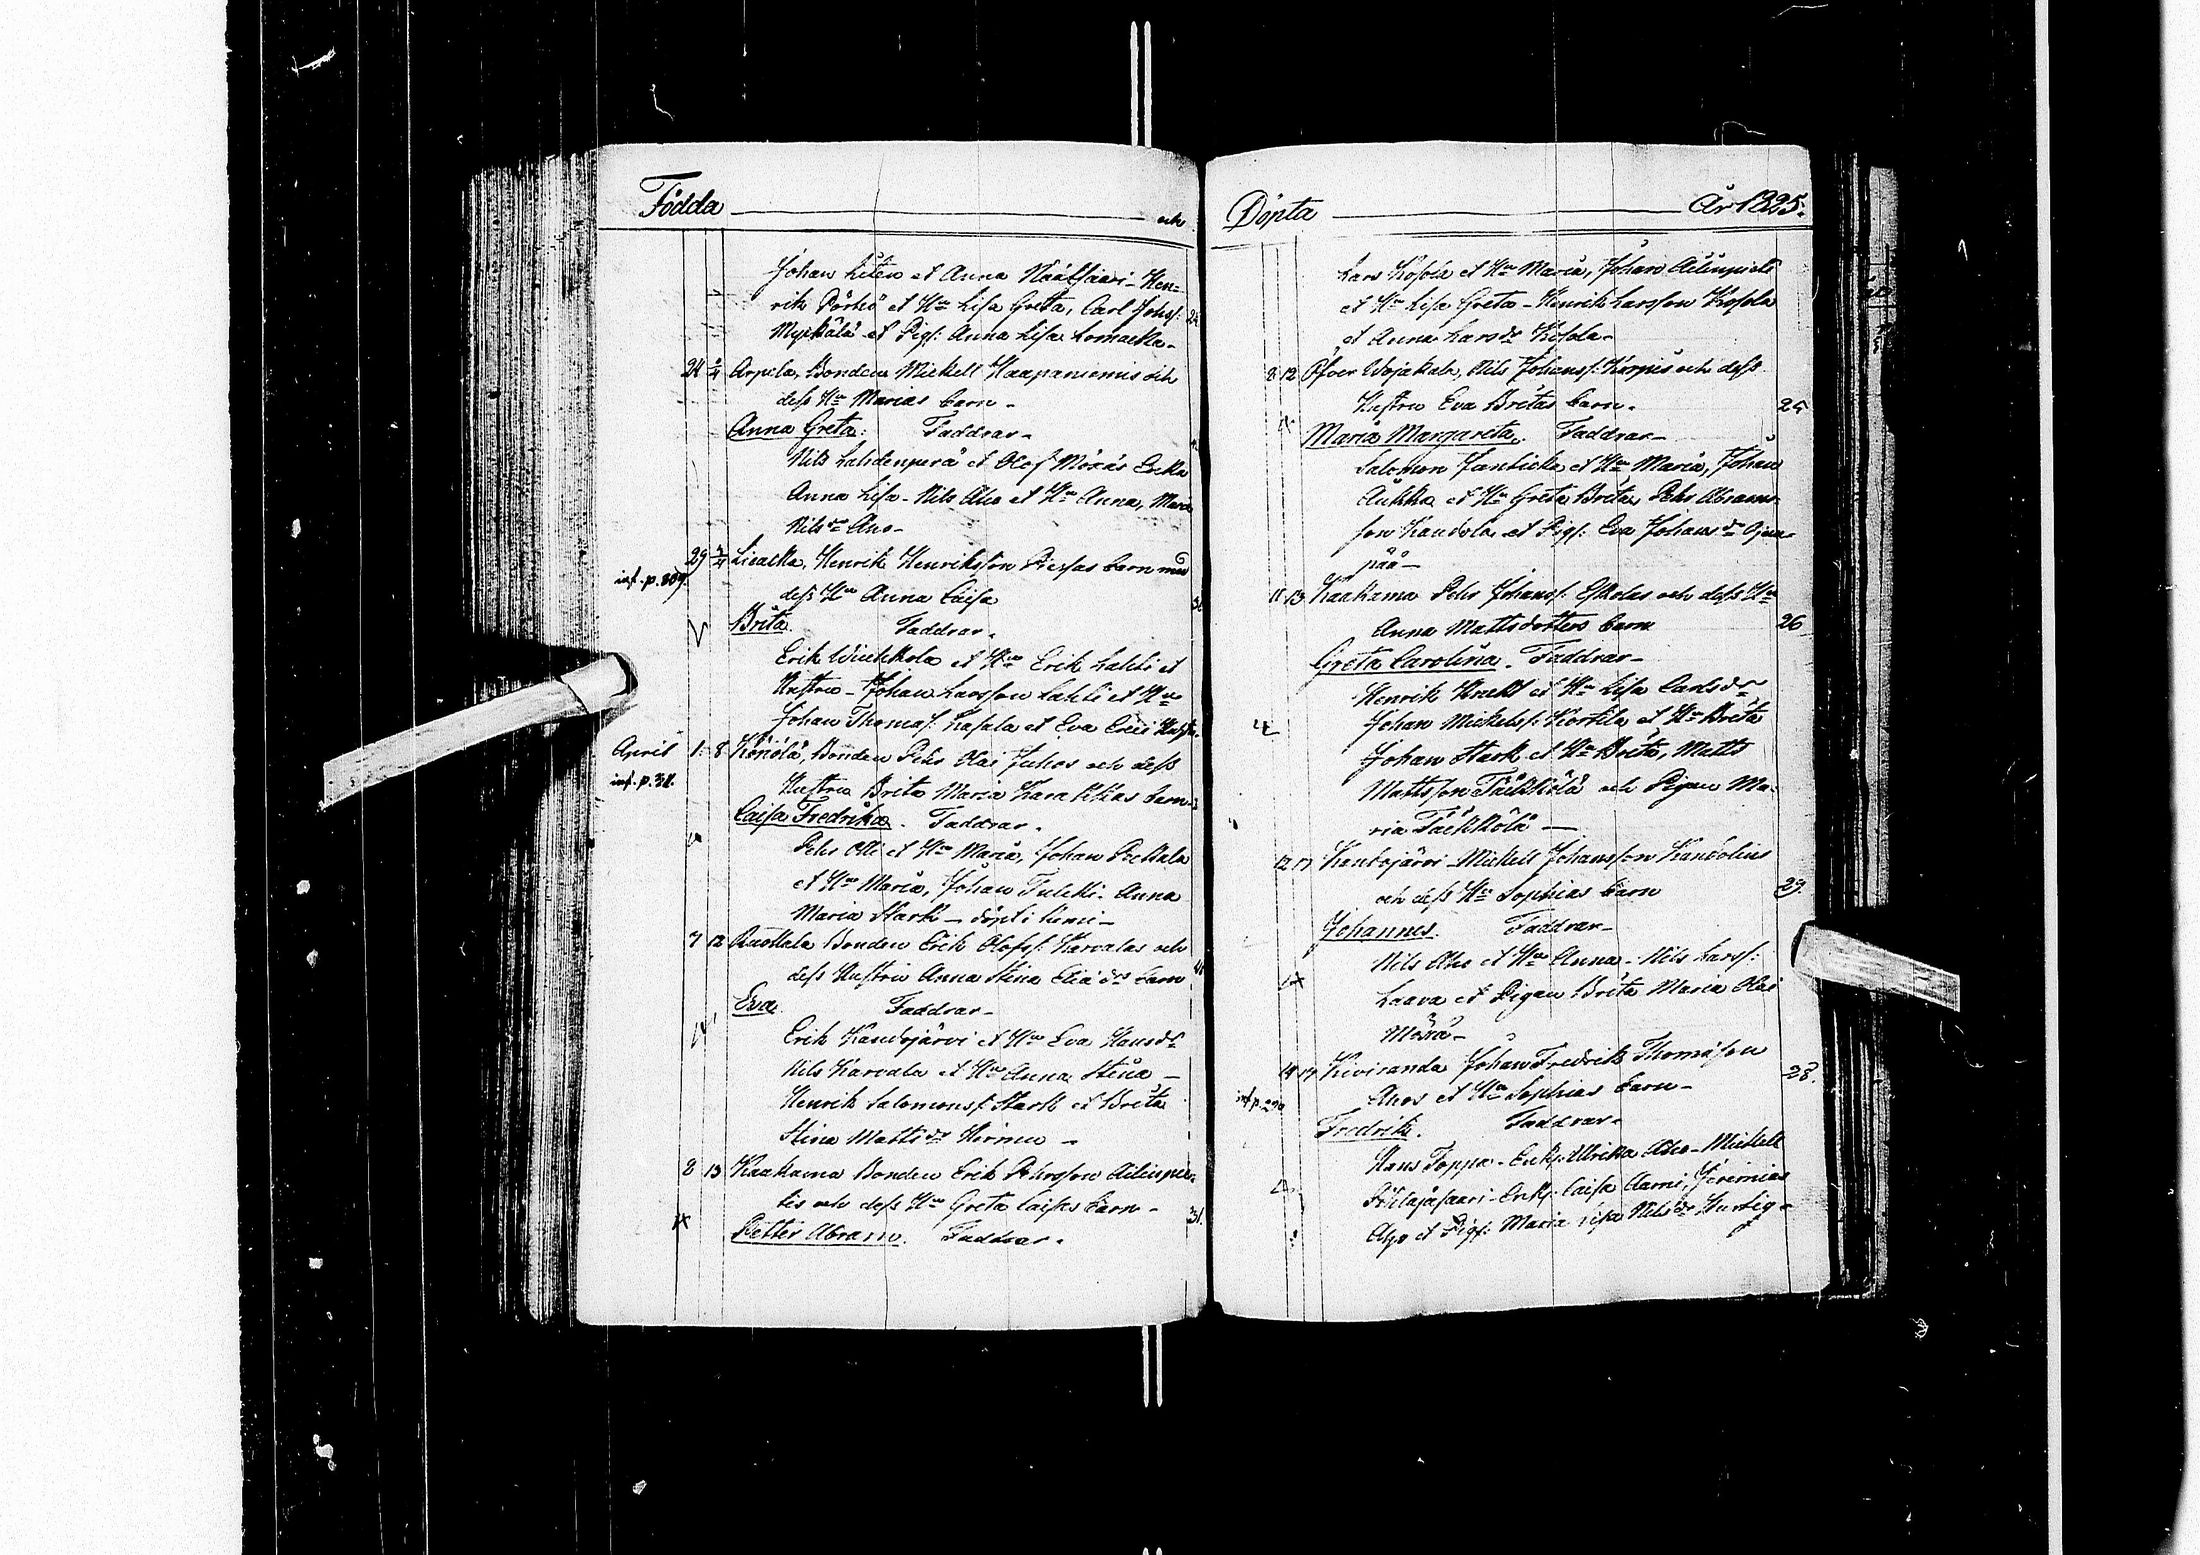 Födda och
Johan Liten et Anna Näätsaari - Hen-
rik Pörhö et Hu Lisa Greta, Carl Johss:
Myckälä et Pigs: Anna Lisa Lomacka - 24
24 3/4 Arpela, Bonden Mickell Haapaniemis och
dess Hu Marias barn -
Anna Greta: Faddrar -
Nils Lahdenperä et Olof Möräs Encka
Anna Lisa - Nils Aho et Hu Anna, Maria
Nilsdr Aho -
inf. p. 309 29 3/4 Lieacka, Henrik Henriksson barn med
dess Hu Anna Caisa
Brita Faddrar -
Erik Wuokkola et Hu Erik Lahti et
Hustru - Johan Larsson Lahti et Hu
Johan Thomass: Lasala et Eva
April 1. 8 Könölä, Bonden Pehr Olai Juhos och dess
inf. p. 38. Hustru Brita Maria barn
Caisa Fredrika. Faddrar -
Pehr Olli et Hu Maria, Johan Pockala
et Hu Maria, Johan Tulcki - Anna
Maria Stark - döpt i Kemi -
7 12 Ruottala Bonden Erik Olofss: Karvalas och
dess Hustru Anna Stina Eliædr barn
Eva Faddrar -
Erik Kandojärvi et Hu Eva Hansdr
Nils Karvala et Hu Anna Stina -
Henrik Salomonss: Stark et Brita
Stina Mattsdr Hirmu -
8 13 Kaakama Bonden Erik Pehrsson Ailinpie-
tis och dess Hu Greta Caisas barn -
Petter Abram. Faddrar - 31.
Döpta År 1825.
Lars Kosola et Hu Maria, Johan Ailinpieti
et Hu Lisa Greta - Henrik Larsson Kosola
et Anna Larsdr Kosola -
8 12 Öfver Wojakala, Nils Johanss: Karpis och dess
Hustru Eva Britas barn - 25
Maria Margareta. Faddrar -
Salomon Junticka et Hu Maria, Johan
Aukka et Hu Greta Brita, Pehr Abrams-
son Kandola et Pigs: Eva Johansdr Ojan-
pää -
11 13 Kaakama Pehr Johanss: Eskolas och dess Hu
Anna Mattsdotters barn 26
Greta Carolina. Faddrar -
Henrik Knekt et Hu Lisa Carlsdr
Johan Mickelss: Kortila et Hu Brita
Johan Stark et Hu Brita, Matts
Mattsson Täckkölä och Pigan Ma-
ria Täckkölä -
12 17 Kandojärvi Mickell Johansson Kandolins
och dess Hu Sophias barn 29.
Johannes. Faddrar -
Nils Aho et Hu Anna - Nils Larss:
Laava et Pigan Brita Maria Olai
Mörä -
14 17 Kiviranda Johan Fredrik Thomasson 28.
inf. p. 290 Ahos et Hu Sophias barn -
Fredrik. Faddrar -
Hans Toppa - Enks: Ulrika Aho - Mickell
Pöllajäsaari - Enks: Caisa Aarni, Jeremias
Alpo et Pigs: Maria Lisa Nilsdr Hurtig -